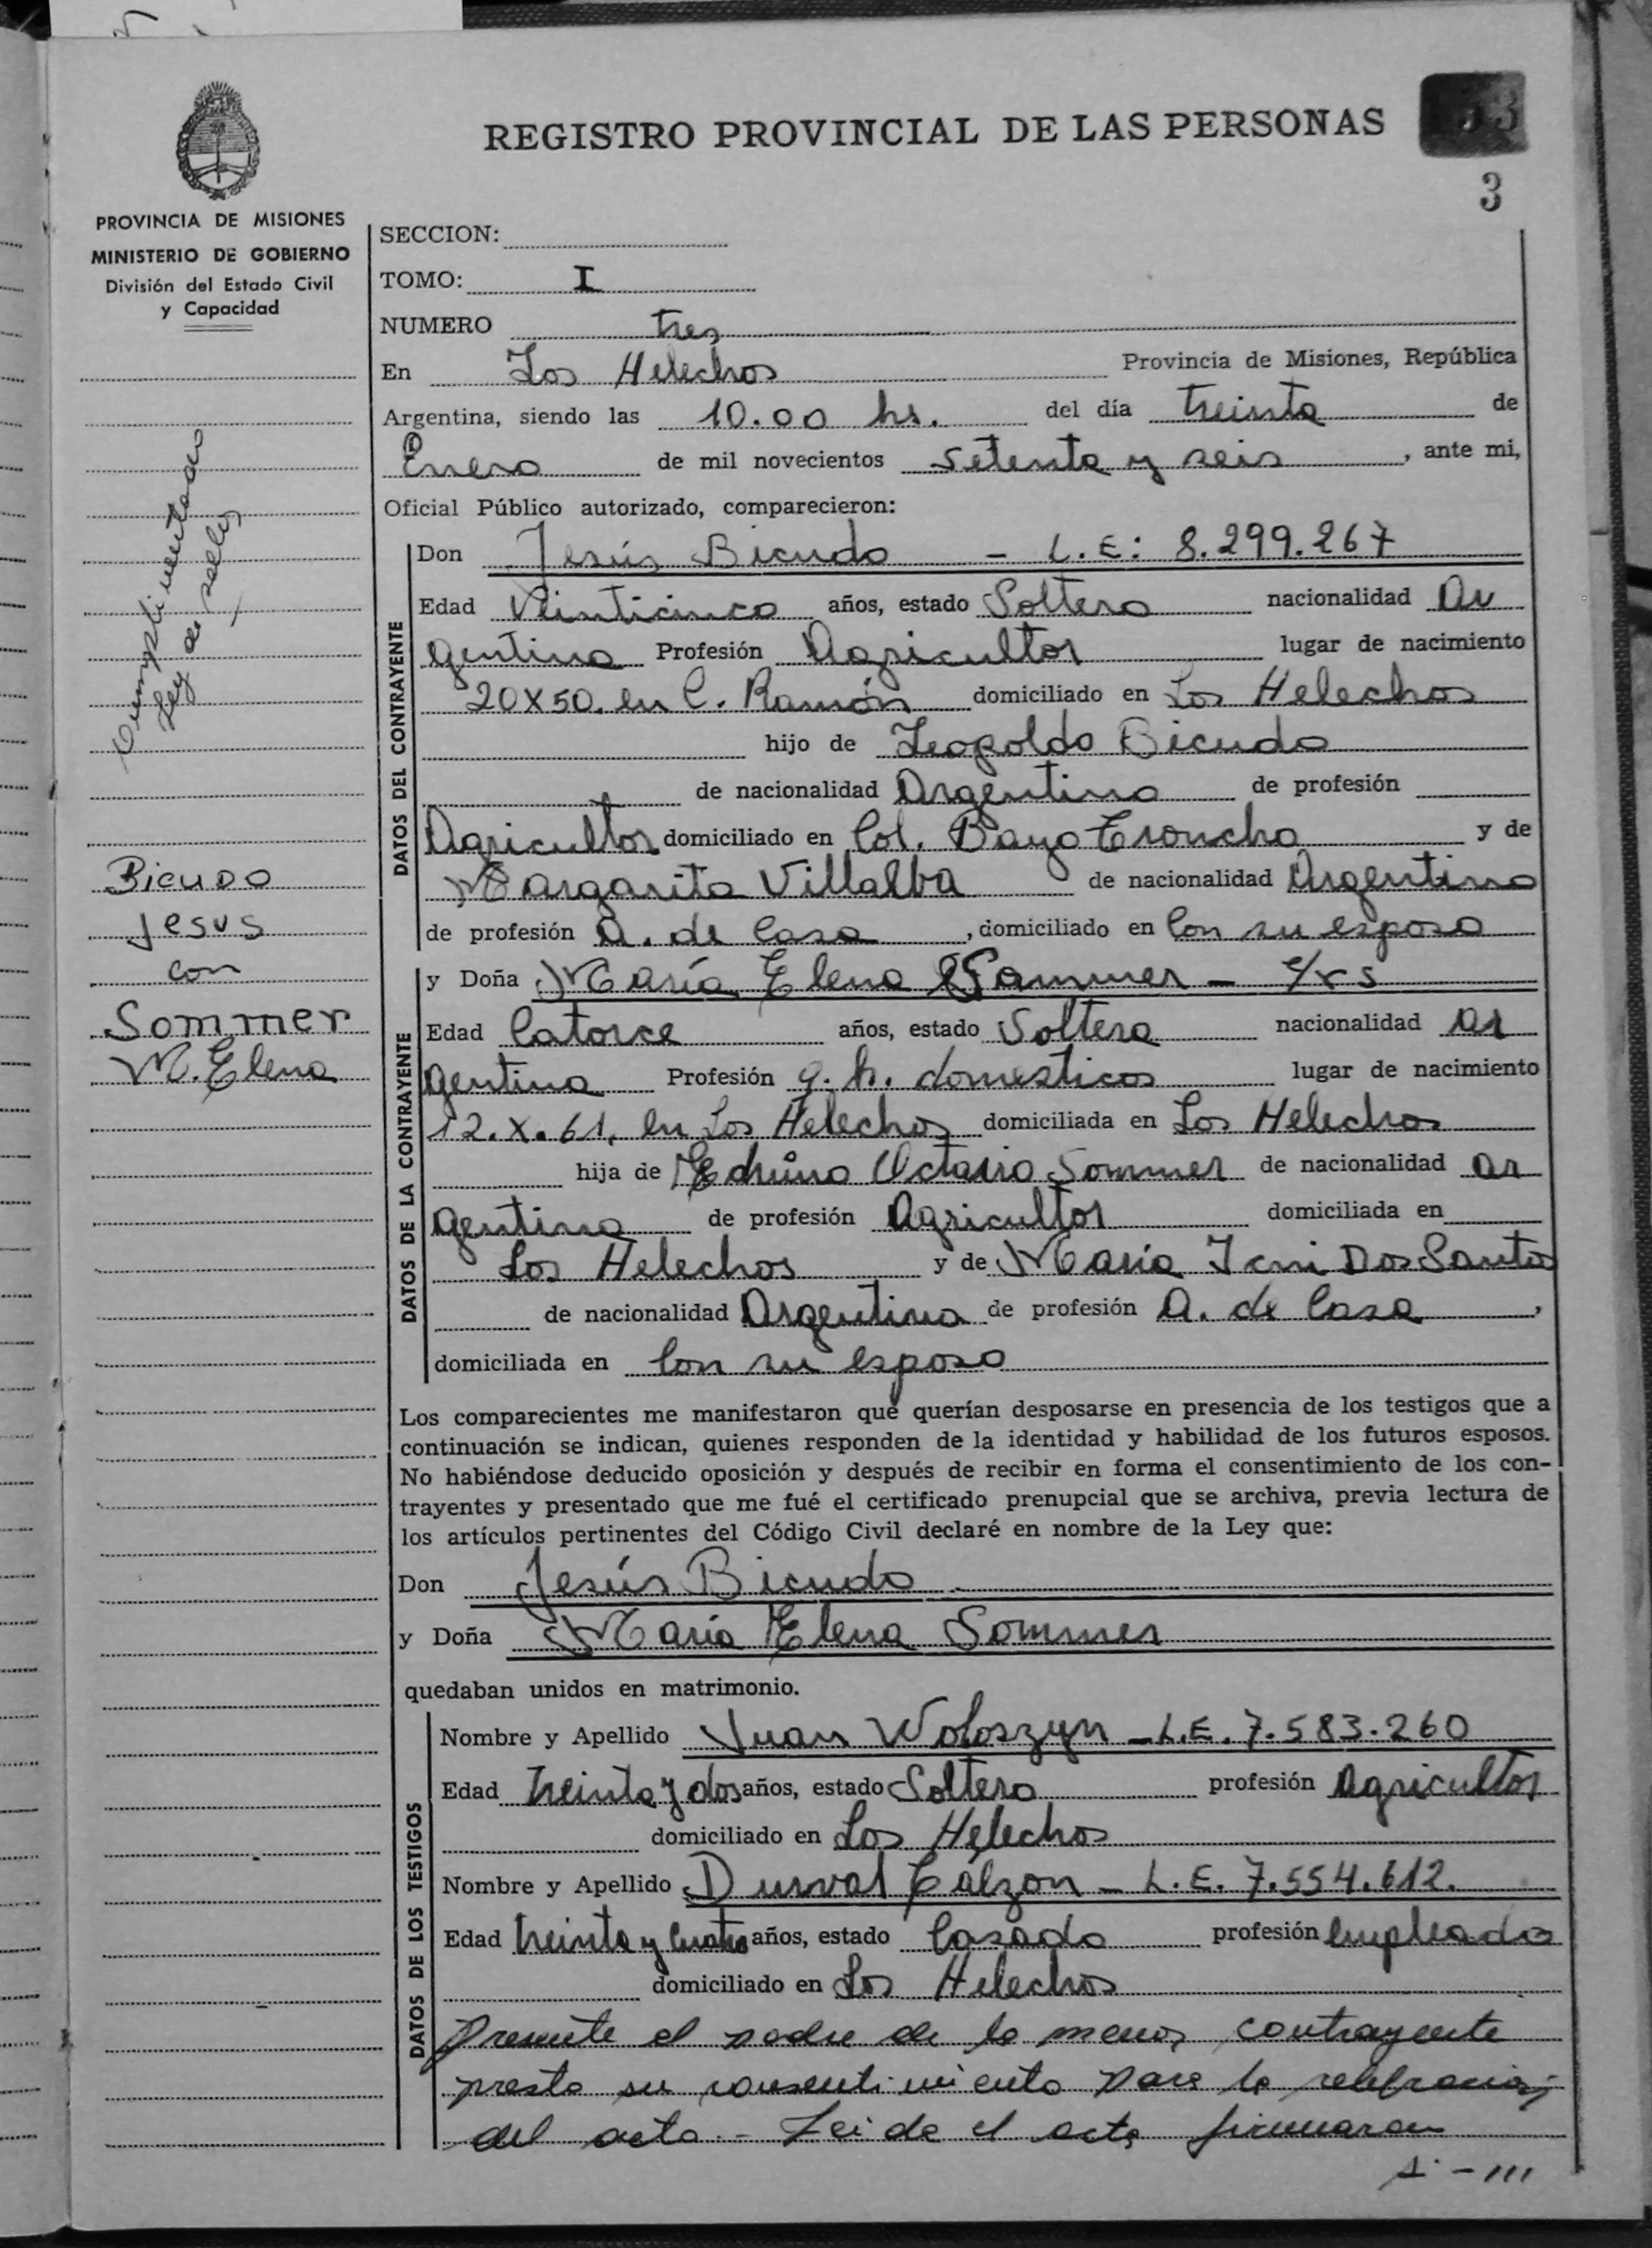 REGISTRO PROVINCIAL DE LAS PERSONAS
53
3
PROVINCIA DE MISIONES
MINISTERIO DE GOBIERNO
División del Estado Civil
y Capacidad
SECCION:
TOMO: I
NUMERO tres
En Los Helechos Provincia de Misiones, República
Argentina, siendo las 10.00 hs. del día treinta de
Enero de mil novecientos setenta y seis, ante mi,
Oficial Público autorizado, comparecieron:
DATOS DEL CONTRAYENTE
Don Jesús Bicudo - L.E: 8.299.267
Edad Veinticinco años, estado Soltero nacionalidad Ar
gentina Profesión Agricultor lugar de nacimiento
20X50. en C. Ramón domiciliado en Los Helechos
hijo de Leopoldo Bicudo
de nacionalidad Argentina de profesión
Agricultor domiciliado en Col. Bayo Troncho y de
Margarita Villalba de nacionalidad Argentina
de profesión A. de Casa, domiciliado en Con su esposo
DATOS DE LA CONTRAYENTE
y Doña María Elena Sommer -
Edad Catorce años, estado Soltera nacionalidad Ar
gentina Profesión q. h. domesticos lugar de nacimiento
12.X.61, en Los Helechos domiciliada en Los Helechos
hija de Octavio Sommer de nacionalidad Ar
gentina de profesión Agricultor domiciliada en
Los Helechos y de María Dos Santos
de nacionalidad Argentina de profesión A. de Casa,
domiciliada en Con su esposo
Los comparecientes me manifestaron que querían desposarse en presencia de los testigos que a
continuación se indican, quienes responden de la identidad y habilidad de los futuros esposos.
No habiéndose deducido oposición y después de recibir en forma el consentimiento de los con-
trayentes y presentado que me fué el certificado prenupcial que se archiva, previa lectura de
los artículos pertinentes del Código Civil declaré en nombre de la Ley que:
Don Jesús Bicudo
y Doña María Elena Sommer
quedaban unidos en matrimonio.
DATOS DE LOS TESTIGOS
Nombre y Apellido Juan Woloszyn - L.E. 7.583.260
Edad treinta y dos años, estado Soltero profesión Agricultor
domiciliado en Los Helechos
Nombre y Apellido Durval Calzon - L.E. 7.554.612.
Edad treinta y cuatro años, estado Casado profesión empleado
domiciliado en Los Helechos
Presente el padre de la menor contrayente
presta su consentimiento para la celebración
del acto. - Leida el acta firmaron
Cumplimentado
Ley de sellos
Bicudo
Jesus
con
Sommer
M. Elena